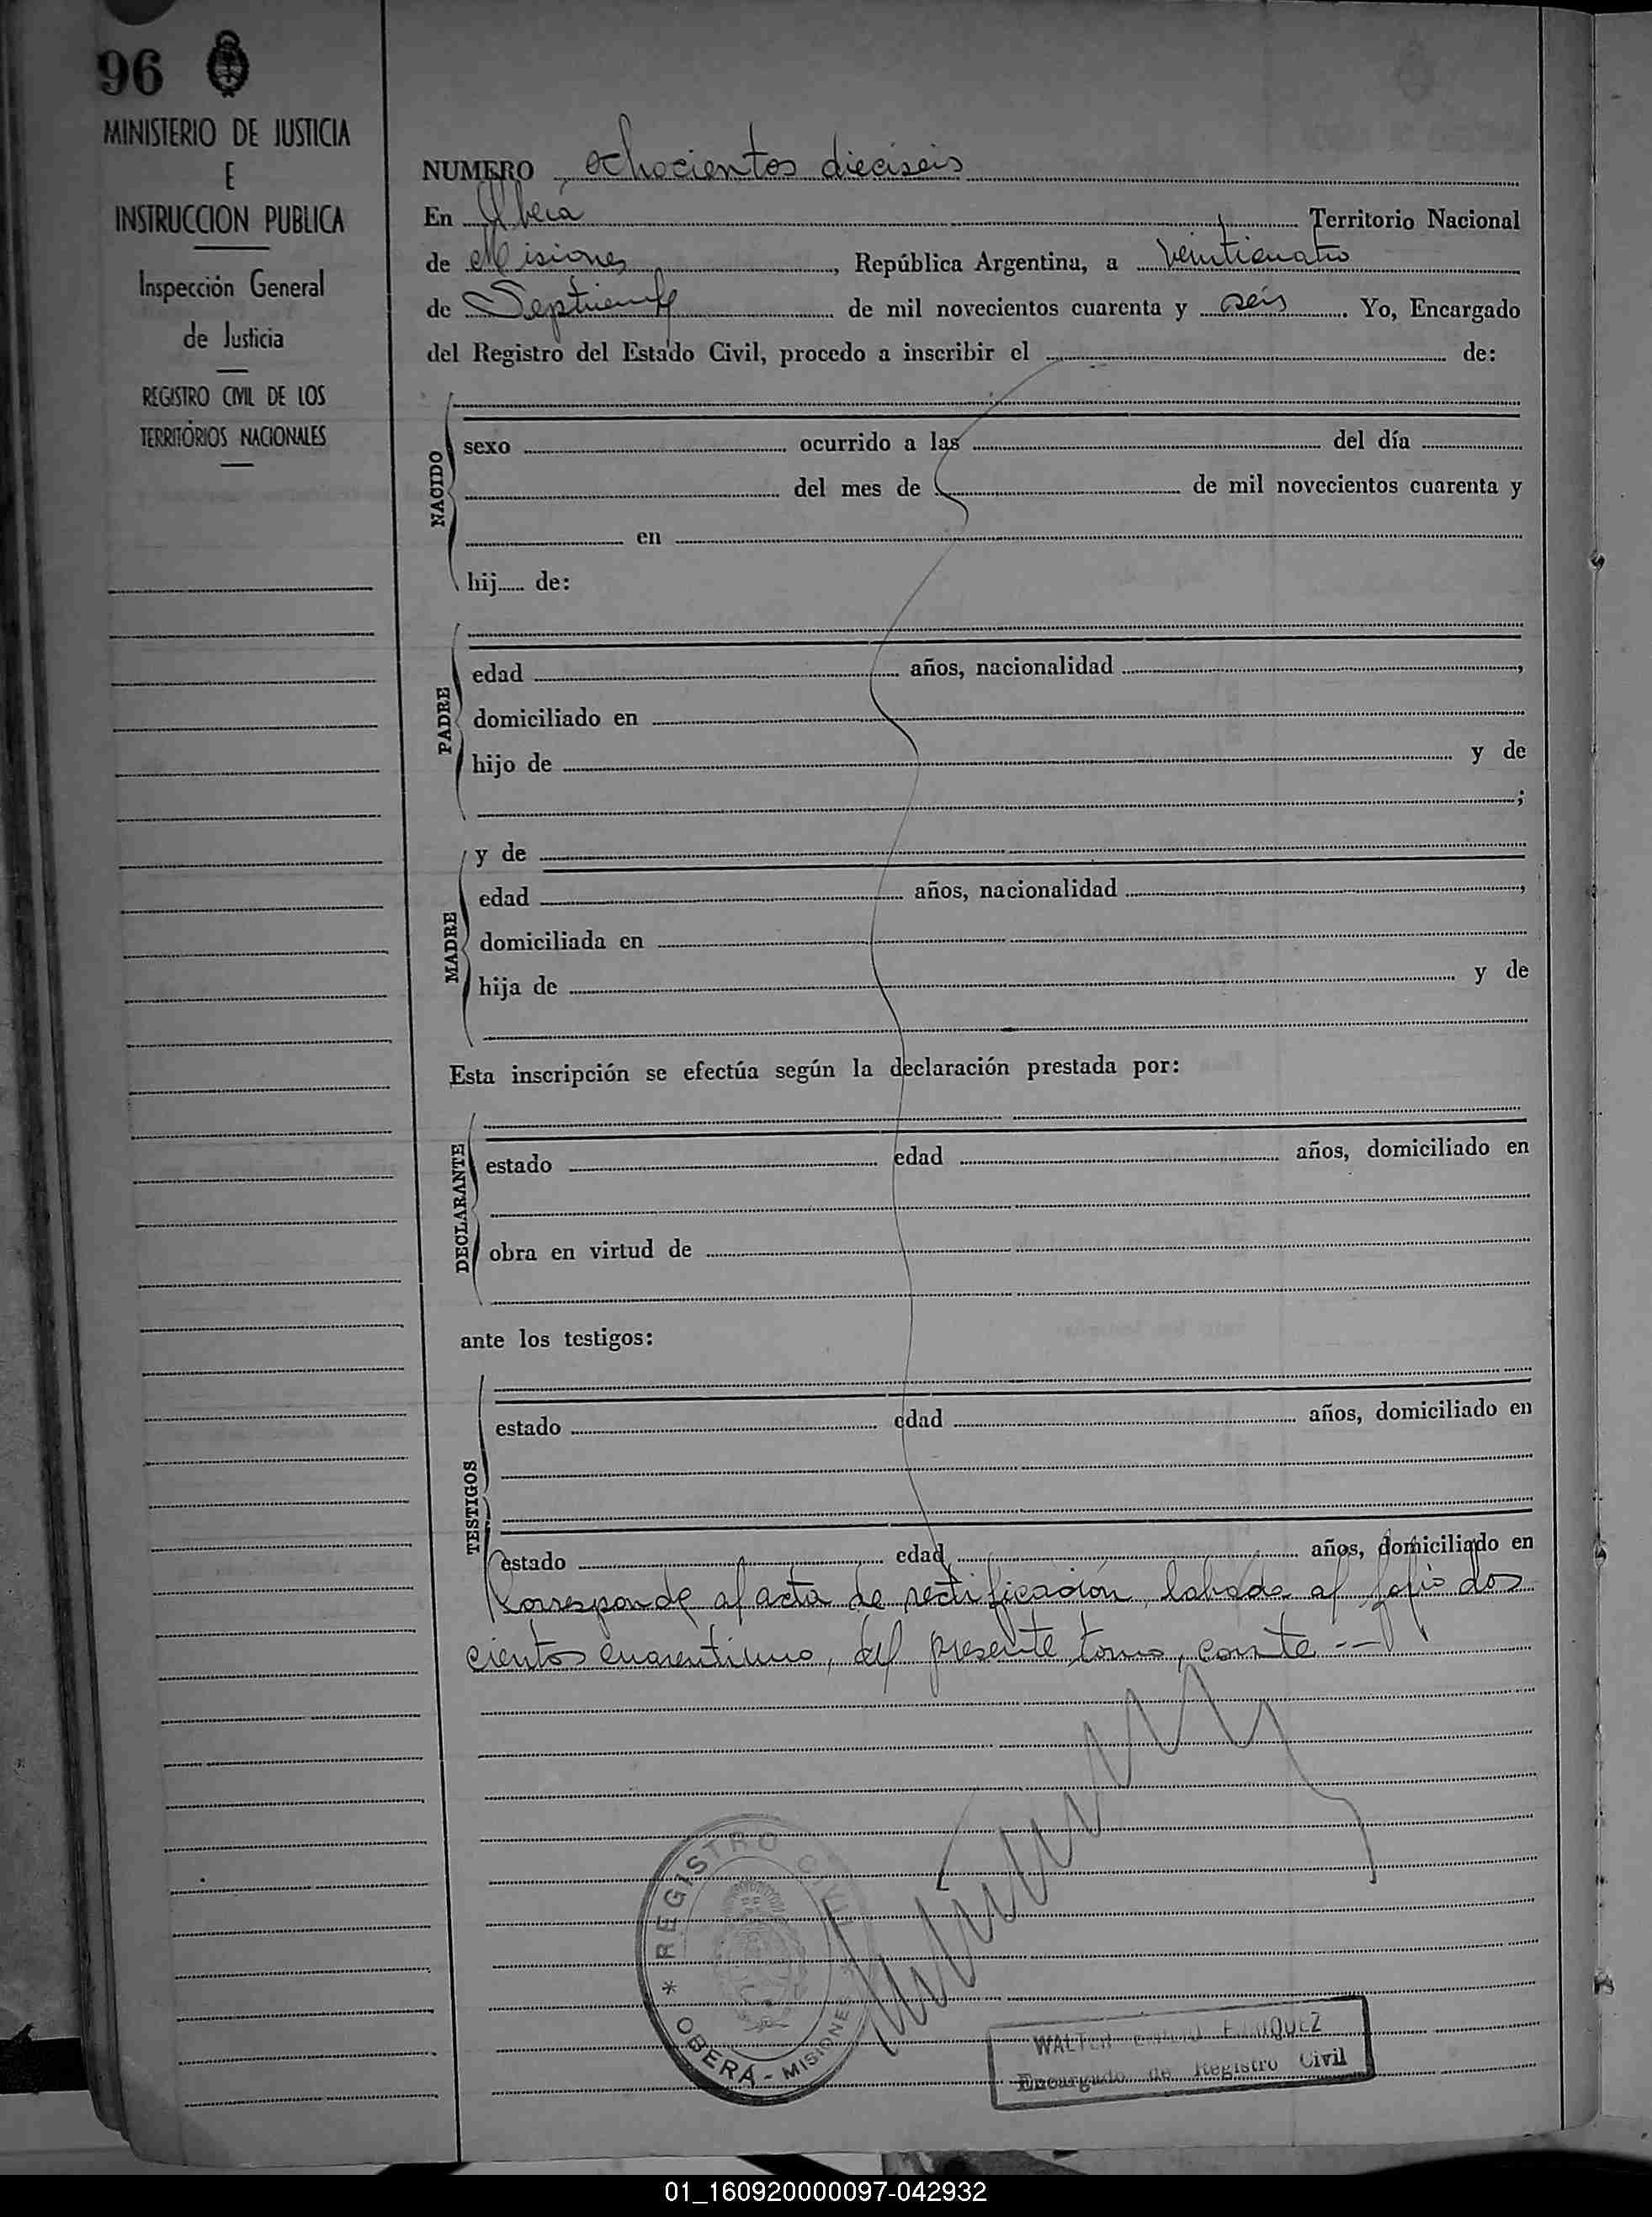 96
MINISTERIO DE JUSTICIA
E
INSTRUCCION PUBLICA
Inspección General
de Justicia
REGISTRO CIVIL DE LOS
TERRITORIOS NACIONALES
NUMERO ochocientos dieciseis
En Oberá Territorio Nacional
de Misiones, República Argentina, a veinticuatro
de Septiembre de mil novecientos cuarenta y seis. Yo, Encargado
del Registro del Estado Civil, procedo a inscribir el de:
NACIDO
sexo ocurrido a las del día
del mes de de mil novecientos cuarenta y
en
hij..... de:
PADRE
edad años, nacionalidad ,
domiciliado en
hijo de y de
;
MADRE
y de
edad años, nacionalidad ,
domiciliada en
hija de y de
Esta inscripción se efectúa según la declaración prestada por:
DECLARANTE
estado edad años, domiciliado en
obra en virtud de
ante los testigos:
TESTIGOS
estado edad años, domiciliado en
estado edad años, domiciliado en
Corresponde al acta de rectificación, labada al folio dos
cientos cuarentiuno, del presente tomo, conste --
* REGISTRO CIVIL *
OBERÁ - MISIONES
WALTER ENRIQUEZ
Encargado de Registro Civil
01_160920000097-042932